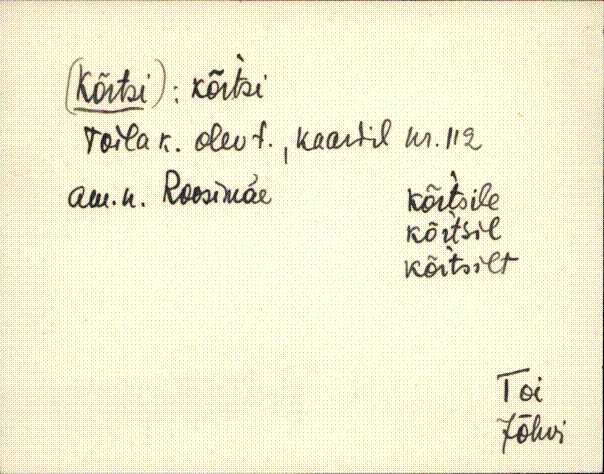 (Kõrtsi): kõr̀tsi
Toila k. olev t., kaardil nr. 112
am. n. Roosimäe
kõr̀tsile
kõr̀tsil
kõr̀tsilt
Toi
Jõhvi